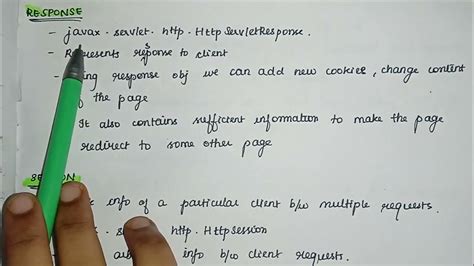 RESPONSE
- javax . servlet . http . HttpServletResponse .
- Represents response to client
- response obj we can add new cookies, change content
of the page
It also contains sufficient information to make the page
redirect to some other page
SESSION
info of a particular client b/w multiple requests.
http . HttpSession
info b/w client requests.